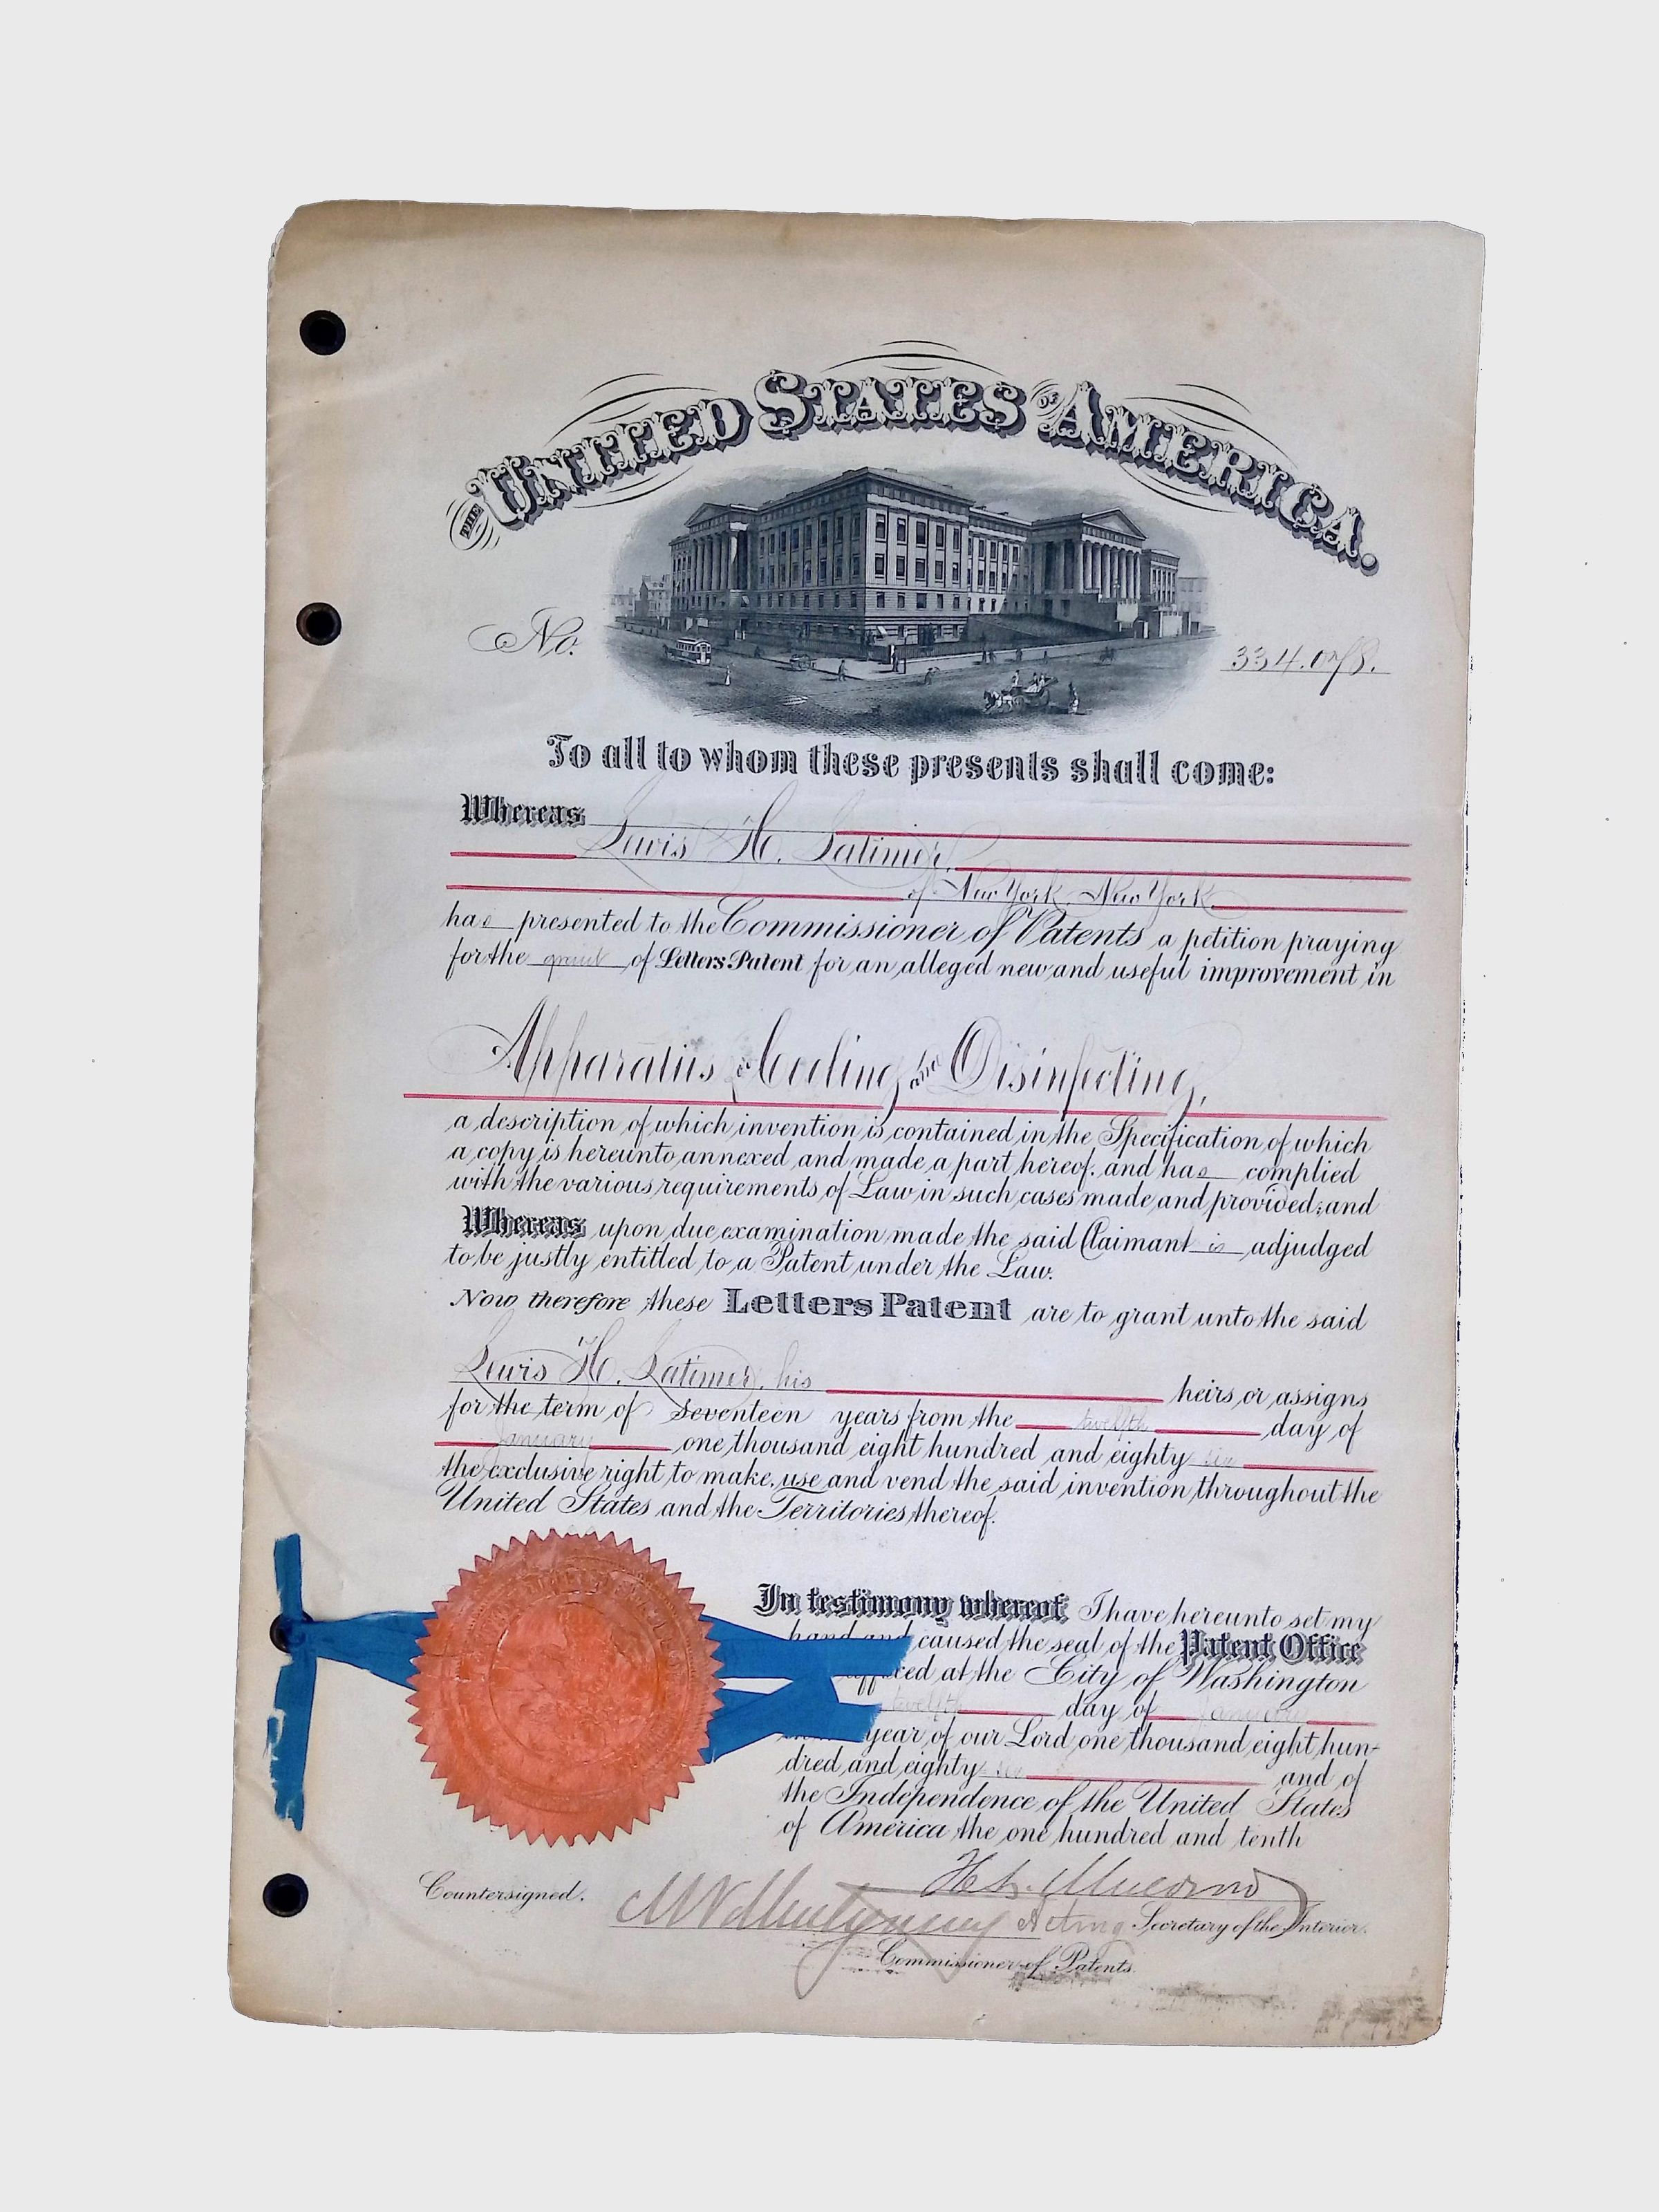 THE UNITED STATES OF AMERICA.
No. 334,078.
To all to whom these presents shall come:
Whereas
Lewis H. Latimer,
of New York, New York,
has presented to the Commissioner of Patents a petition praying
for the grant of Letters Patent for an alleged new and useful improvement in
Apparatus for Cooling and Disinfecting,
a description of which invention is contained in the Specification of which
a copy is hereunto annexed and made a part hereof, and has complied
with the various requirements of Law in such cases made and provided; and
Whereas upon due examination made the said Claimant is adjudged
to be justly entitled to a Patent under the Law.
Now therefore these Letters Patent are to grant unto the said
Lewis H. Latimer, his heirs or assigns
for the term of seventeen years from the twelfth day of
January one thousand eight hundred and eighty six
the exclusive right to make, use and vend the said invention throughout the
United States and the Territories thereof.
In testimony whereof I have hereunto set my
hand and caused the seal of the Patent Office
affixed at the City of Washington
twelfth day of January
year of our Lord one thousand eight hun-
dred and eighty six and of
the Independence of the United States
of America the one hundred and tenth
Countersigned.
Acting Secretary of the Interior.
Commissioner of Patents.